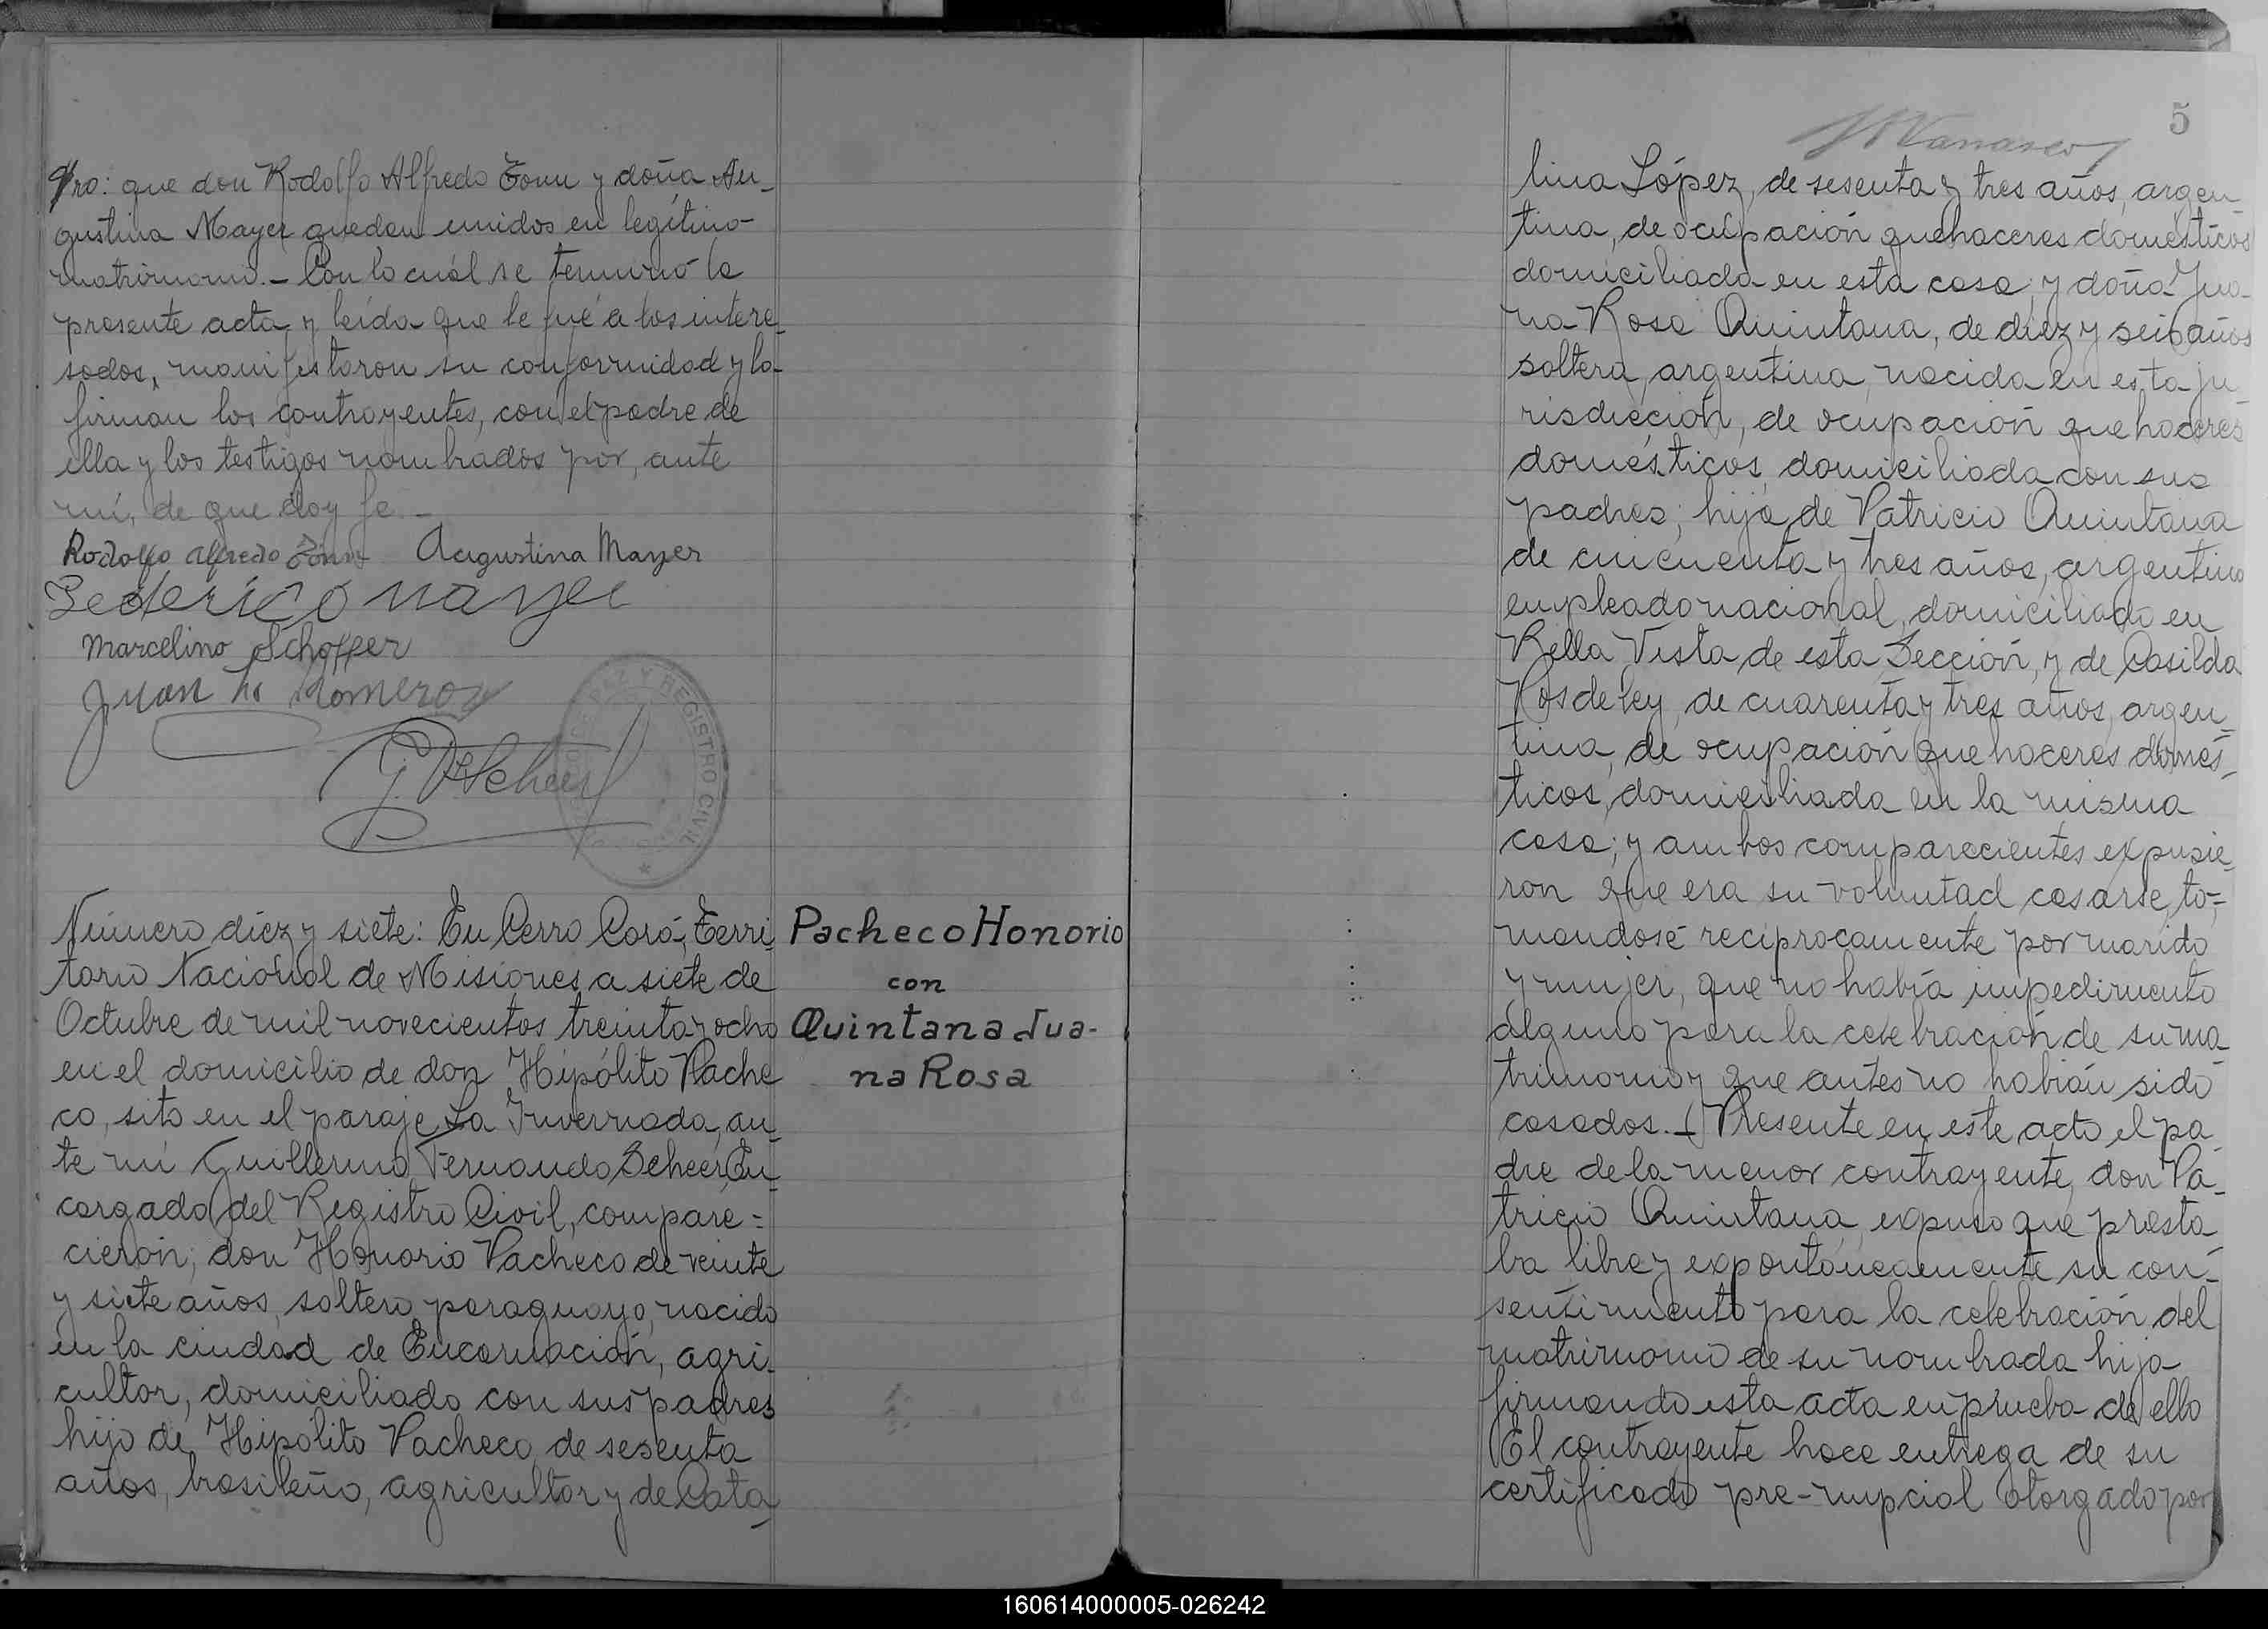 que don Rodolfo Alfredo Tonn y doña Au-
gustina Mayer quedan unidos en legítimo
matrimonio.- Con lo cuál se terminó la
presente acta y leída que le fué a los intere-
sados, manifestaron su conformidad y la
firman los contrayentes, con el padre de
ella y los testigos nombrados por, ante
mí, de que doy fe.-
Rodolfo Alfredo Tonn Augustina Mayer
Federico Mayer
Marcelino Schoffer
Juan Romero
G. F. Scheer
PAZ Y REGISTRO CIVIL
Número diez y siete: En Cerro Corá, Terri-
torio Nacional de Misiones a siete de
Octubre de mil novecientos treinta y ocho
en el domicilio de don Hipólito Pache
co, sito en el paraje La Invernada, an-
te mí Guillermo Fernando Scheer, En-
cargado del Registro Civil, compare=
cieron; don Honorio Pacheco de veinte
y siete años, soltero, paraguayo, nacido
en la ciudad de Encarnación, agri-
cultor, domiciliado con sus padres
hijo de Hipólito Pacheco, de sesenta
años, brasileño, agricultor y de Cata-
Pacheco Honorio
con
Quintana Jua-
na Rosa
5
Vanasco
lina López, de sesenta y tres años, argen-
tina, de ocupación quehaceres domésticos
domiciliada en esta casa; y doña Jua-
na Rosa Quintana, de diez y seis años
soltera, argentina, nacida en esta ju-
risdicción, de ocupación quehaceres
domésticos, domiciliada con sus
padres; hija de Patricio Quintana
de cincuenta y tres años, argentino
empleado nacional, domiciliado en
Bella Vista de esta Sección, y de Casilda
Rosdeley, de cuarenta y tres años, argen-
tina, de ocupación quehaceres domés-
ticos, domiciliada en la misma
casa; y ambos comparecientes expusie-
ron que era su voluntad casarse, to=
mandosé reciprocamente por marido
y mujer, que no había impedimento
alguno para la celebración de su ma-
trimonio y que antes no habían sido
casados.- Presente en este acto el pa-
dre de la menor contrayente, don Pa-
tricio Quintana, expuso que presta-
ba libre y expontáneamente su con-
sentimiento para la celebración del
matrimonio de su nombrada hija
firmando esta acta en prueba de ello
El contrayente hace entrega de su
certificado pre-nupcial otorgado por
160614000005-026242